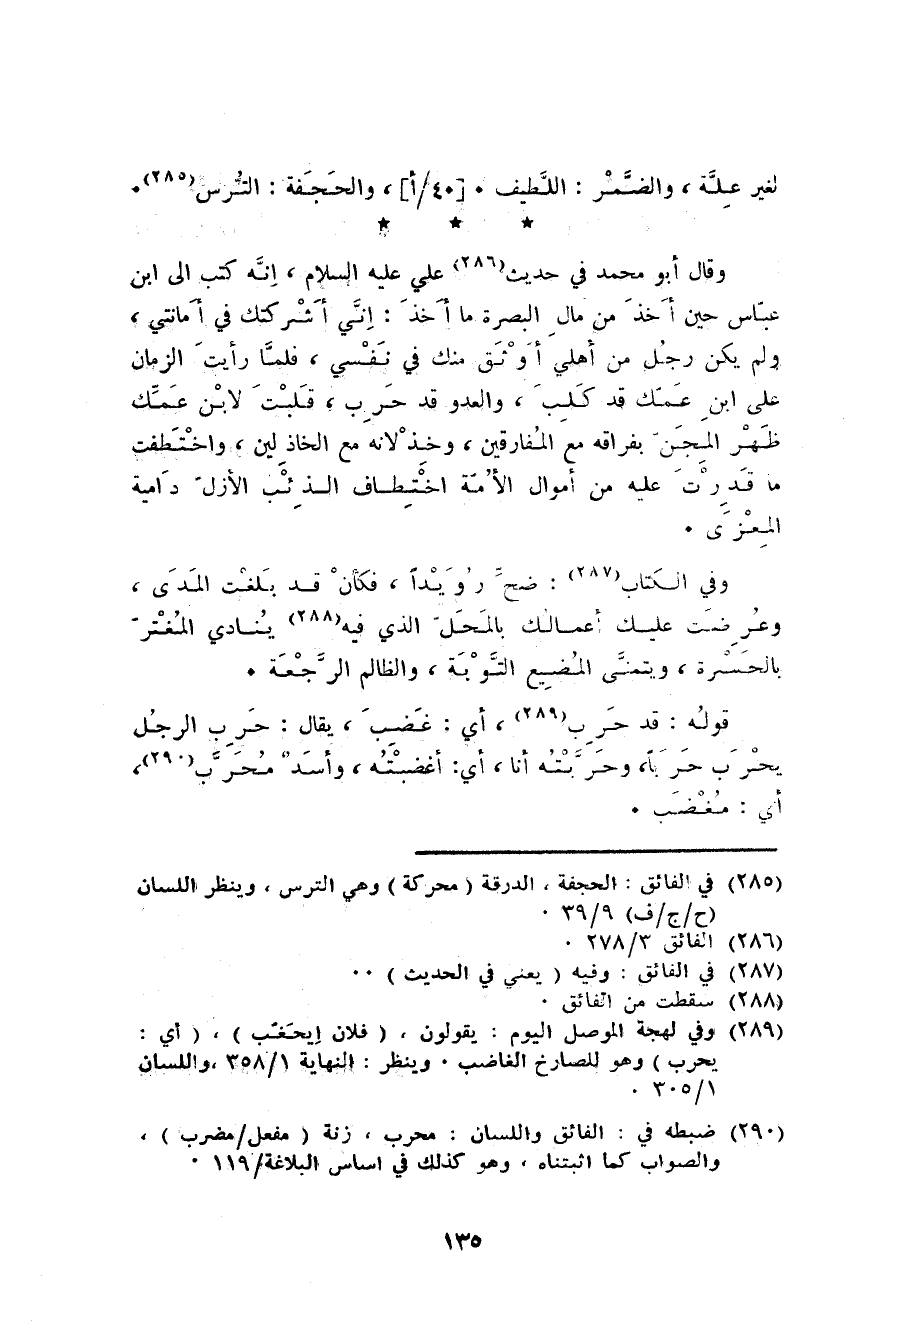 لغير عِلَّة ، والضَّمْر : اللَّطيف ٠ [٤٠/أ] ، والحَجَفَة : التُّرس(٢٨٥)٠
★ ★ ★
وقال أبو محمد في حديث(٢٨٦) علي عليه السلام ، إنَّه كتب الى ابن
عبّاس حين أَخذَ من مالِ البصرة ما أَخذَ : إنَّي أَشْركتك في أَمانتي ،
ولم يكن رجلُ من أهلي أَوْثَق منك في نَفْسي ، فلمَّا رأيتَ الزمان
على ابنِ عَمّك قد كَلِبَ ، والعدو قد حَرِب ، قَلبْتَ لابْن عَمّك
ظَهْر المِجَنّ بفراقه مع المُفارقين ، وخذْلانه مع الخاذلين ، واخْتَطفت
ما قَدرِْتَ عليه من أموال الأُمّة اخْتِطاف الذئْب الأزلّ دَامية
المِعْزَى ٠
وفي الكتاب(٢٨٧) : ضحَّ رُوَيْداً ، فكأنْ قد بَلغْت المَدَى ،
وعُرِضَت عليك أعمالك بالمَحَلّ الذي فيه(٢٨٨) يُنادي المُغْترّ
بالحَسْرة ، ويتمنَّى المُضيع التَّوْبَة ، والظالم الرَّجْعَة ٠
قولُه : قد حَرِب(٢٨٩) ، أي : غَضِبَ ، يقال : حَرِب الرجلُ
يحْرَب حَرَباً، وحَرَّبْتُه أنا ، أي: أغضبْتُه ، وأسدٌ مُحَرَّب(٢٩٠)،
أي : مُغْضَب ٠
(٢٨٥) في الفائق : الحجفة ، الدرقة ( محركة ) وهي الترس ، وينظر اللسان
(ح/ج/ف) ٣٩/٩ ٠
(٢٨٦) الفائق ٢٧٨/٣ ٠
(٢٨٧) في الفائق : وفيه ( يعني في الحديث ) ٠٠
(٢٨٨) سقطت من الفائق ٠
(٢٨٩) وفي لهجة الموصل اليوم : يقولون ، ( فلان إيحَغّب ) ، ( أي :
يحرب ) وهو للصارخ الغاضب ٠ وينظر : النهاية ٣٥٨/١ ،واللسان
٣٠٥/١ ٠
(٢٩٠) ضبطه في : الفائق واللسان : محرب ، زنة ( مفعل/مضرب ) ،
والصواب كما اثبتناه ، وهو كذلك في اساس البلاغة/١١٩ ٠
١٣٥